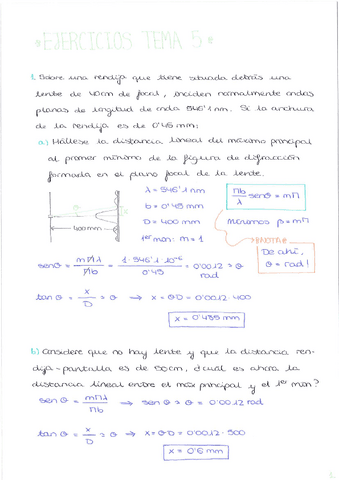 * EJERCICIOS TEMA 5 *
1. Sobre una rendija que tiene situada detrás una
lente de 40cm de focal, inciden normalmente ondas
planas de longitud de onda 546'1 nm. Si la anchura
de la rendija es de 0'45 mm:
a) Hállese la distancia lineal del máximo principal
al primer mínimo de la figura de difracción
formada en el plano focal de la lente.
λ = 546'1 nm
b = 0'45 mm
D = 400 mm
1er mín: m = 1
400mm
Πb/λ senθ = mΠ
Mínimos β = mΠ
De ahí,
θ = rad!
senθ = mΠλ/Πb = 1·546'1·10⁻⁶/0'45 = 0'0012 ≈ θ
rad
tanθ = x/D ≈ θ → x = θD = 0'0012·400
x = 0'485 mm
b) Considere que no hay lente y que la distancia ren-
dija-pantalla es de 50cm, ¿cuál es ahora la
distancia lineal entre el máx principal y el 1er mín?
senθ = mΠλ/Πb → senθ ≈ θ = 0'0012 rad
tanθ = x/D ≈ θ → x = θD = 0'0012·500
x = 0'6 mm
1.